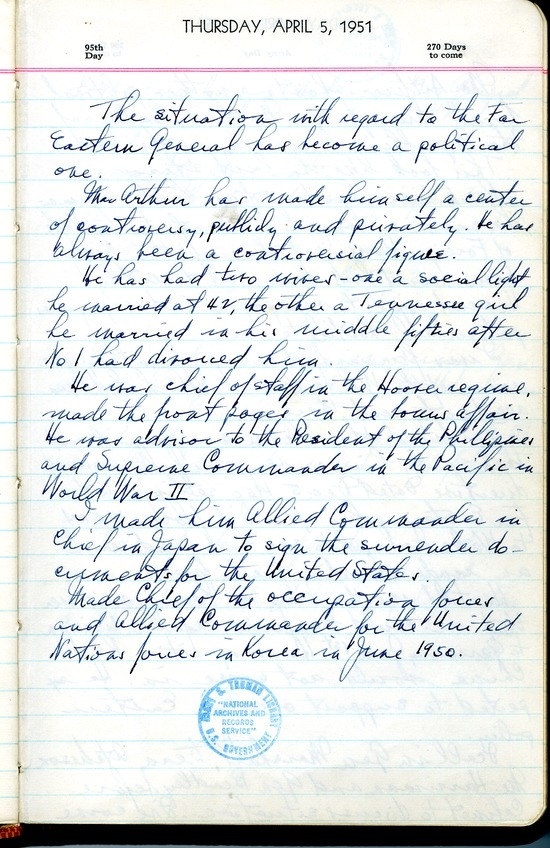 THURSDAY, APRIL 5, 1951
95th
Day
270 Days
to come
The situation with regard to the Far
Eastern General has become a political
one.
MacArthur has made himself a center
of controversy, publicly and privately. He has
always been a controversial figure.
He has had two wives - one a social light
he married at 42, the other a Tennessee girl
he married in his middle fifties after
No 1 had divorced him.
He was chief of staff in the Hoover regime,
made the front pages in the bonus affair.
He was advisor to the President of the Phillipines
and Supreme Commander in the Pacific in
World War II
I made him Allied Commander in
Chief in Japan to sign the surrender do-
cuments for the United States.
Made Chief of the occupation forces
and Allied Commander for the United
Nations forces in Korea in June 1950.
HARRY S. TRUMAN LIBRARY
"NATIONAL
ARCHIVES AND
RECORDS
SERVICE"
U.S. GOVERNMENT